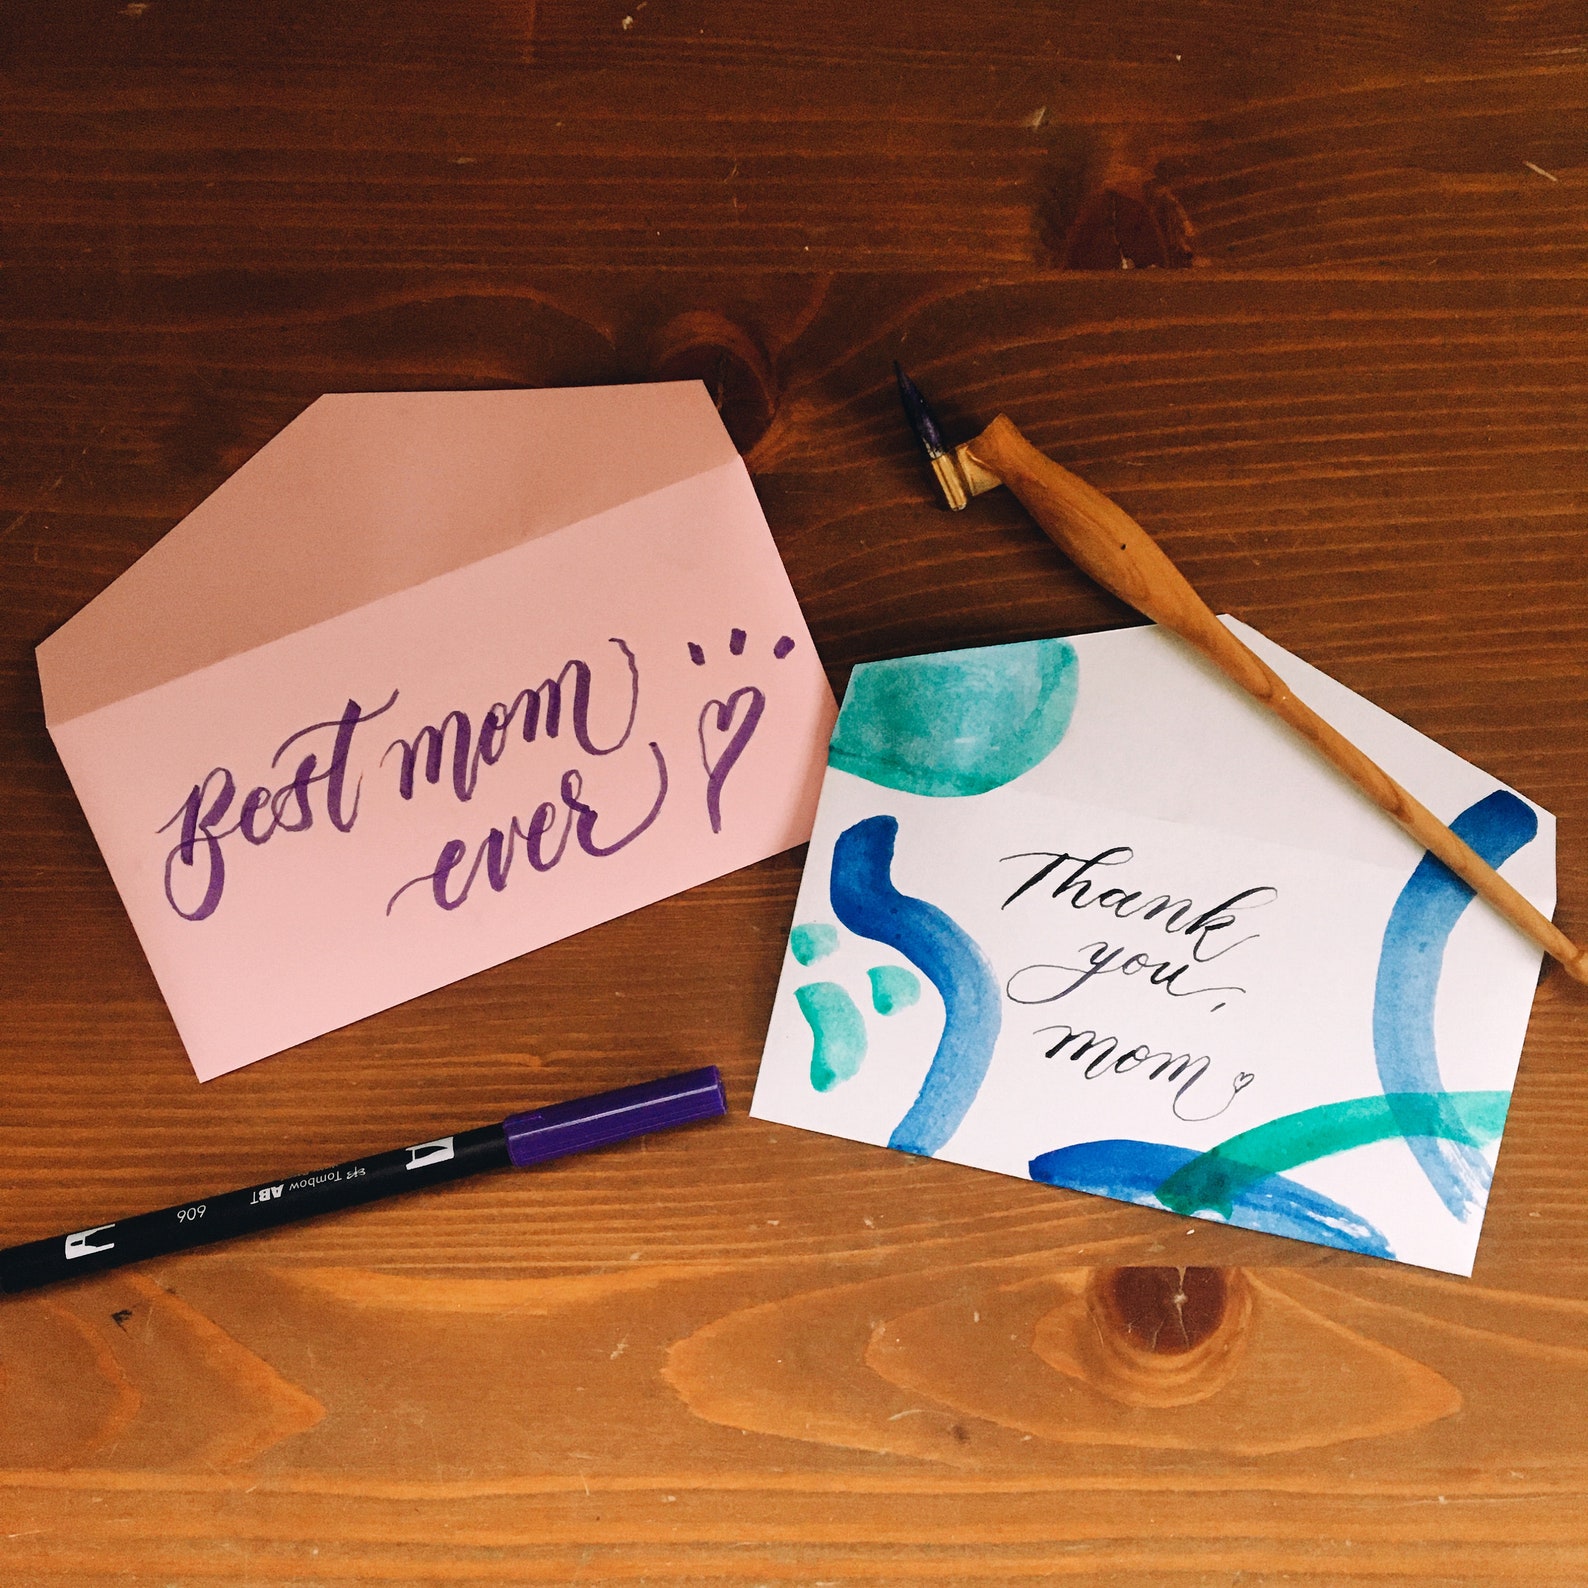 Best mom
ever
Thank
you,
mom
Tombow ABT
606